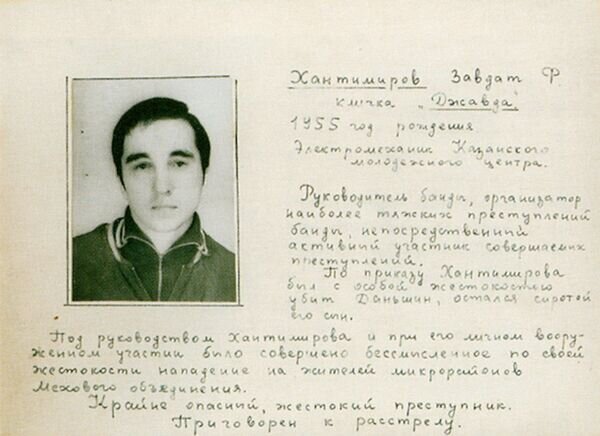 Хантимиров Завдат Ф.
кличка "Джавда"
1955 год рождения
Электромеханик Казанского
молодежного центра.
Руководитель банды, организатор
наиболее тяжких преступлений
банды, непосредственный
активный участник совершаемых
преступлений.
По приказу Хантимирова
был с особой жестокостью
убит Даньшин, остался сиротой
его сын.
Под руководством Хантимирова и при его личном воору-
женном участии было совершено бессмысленное по своей
жестокости нападение на жителей микрорайонов
Мехового объединения.
Крайне опасный, жестокий преступник.
Приговорен к расстрелу.